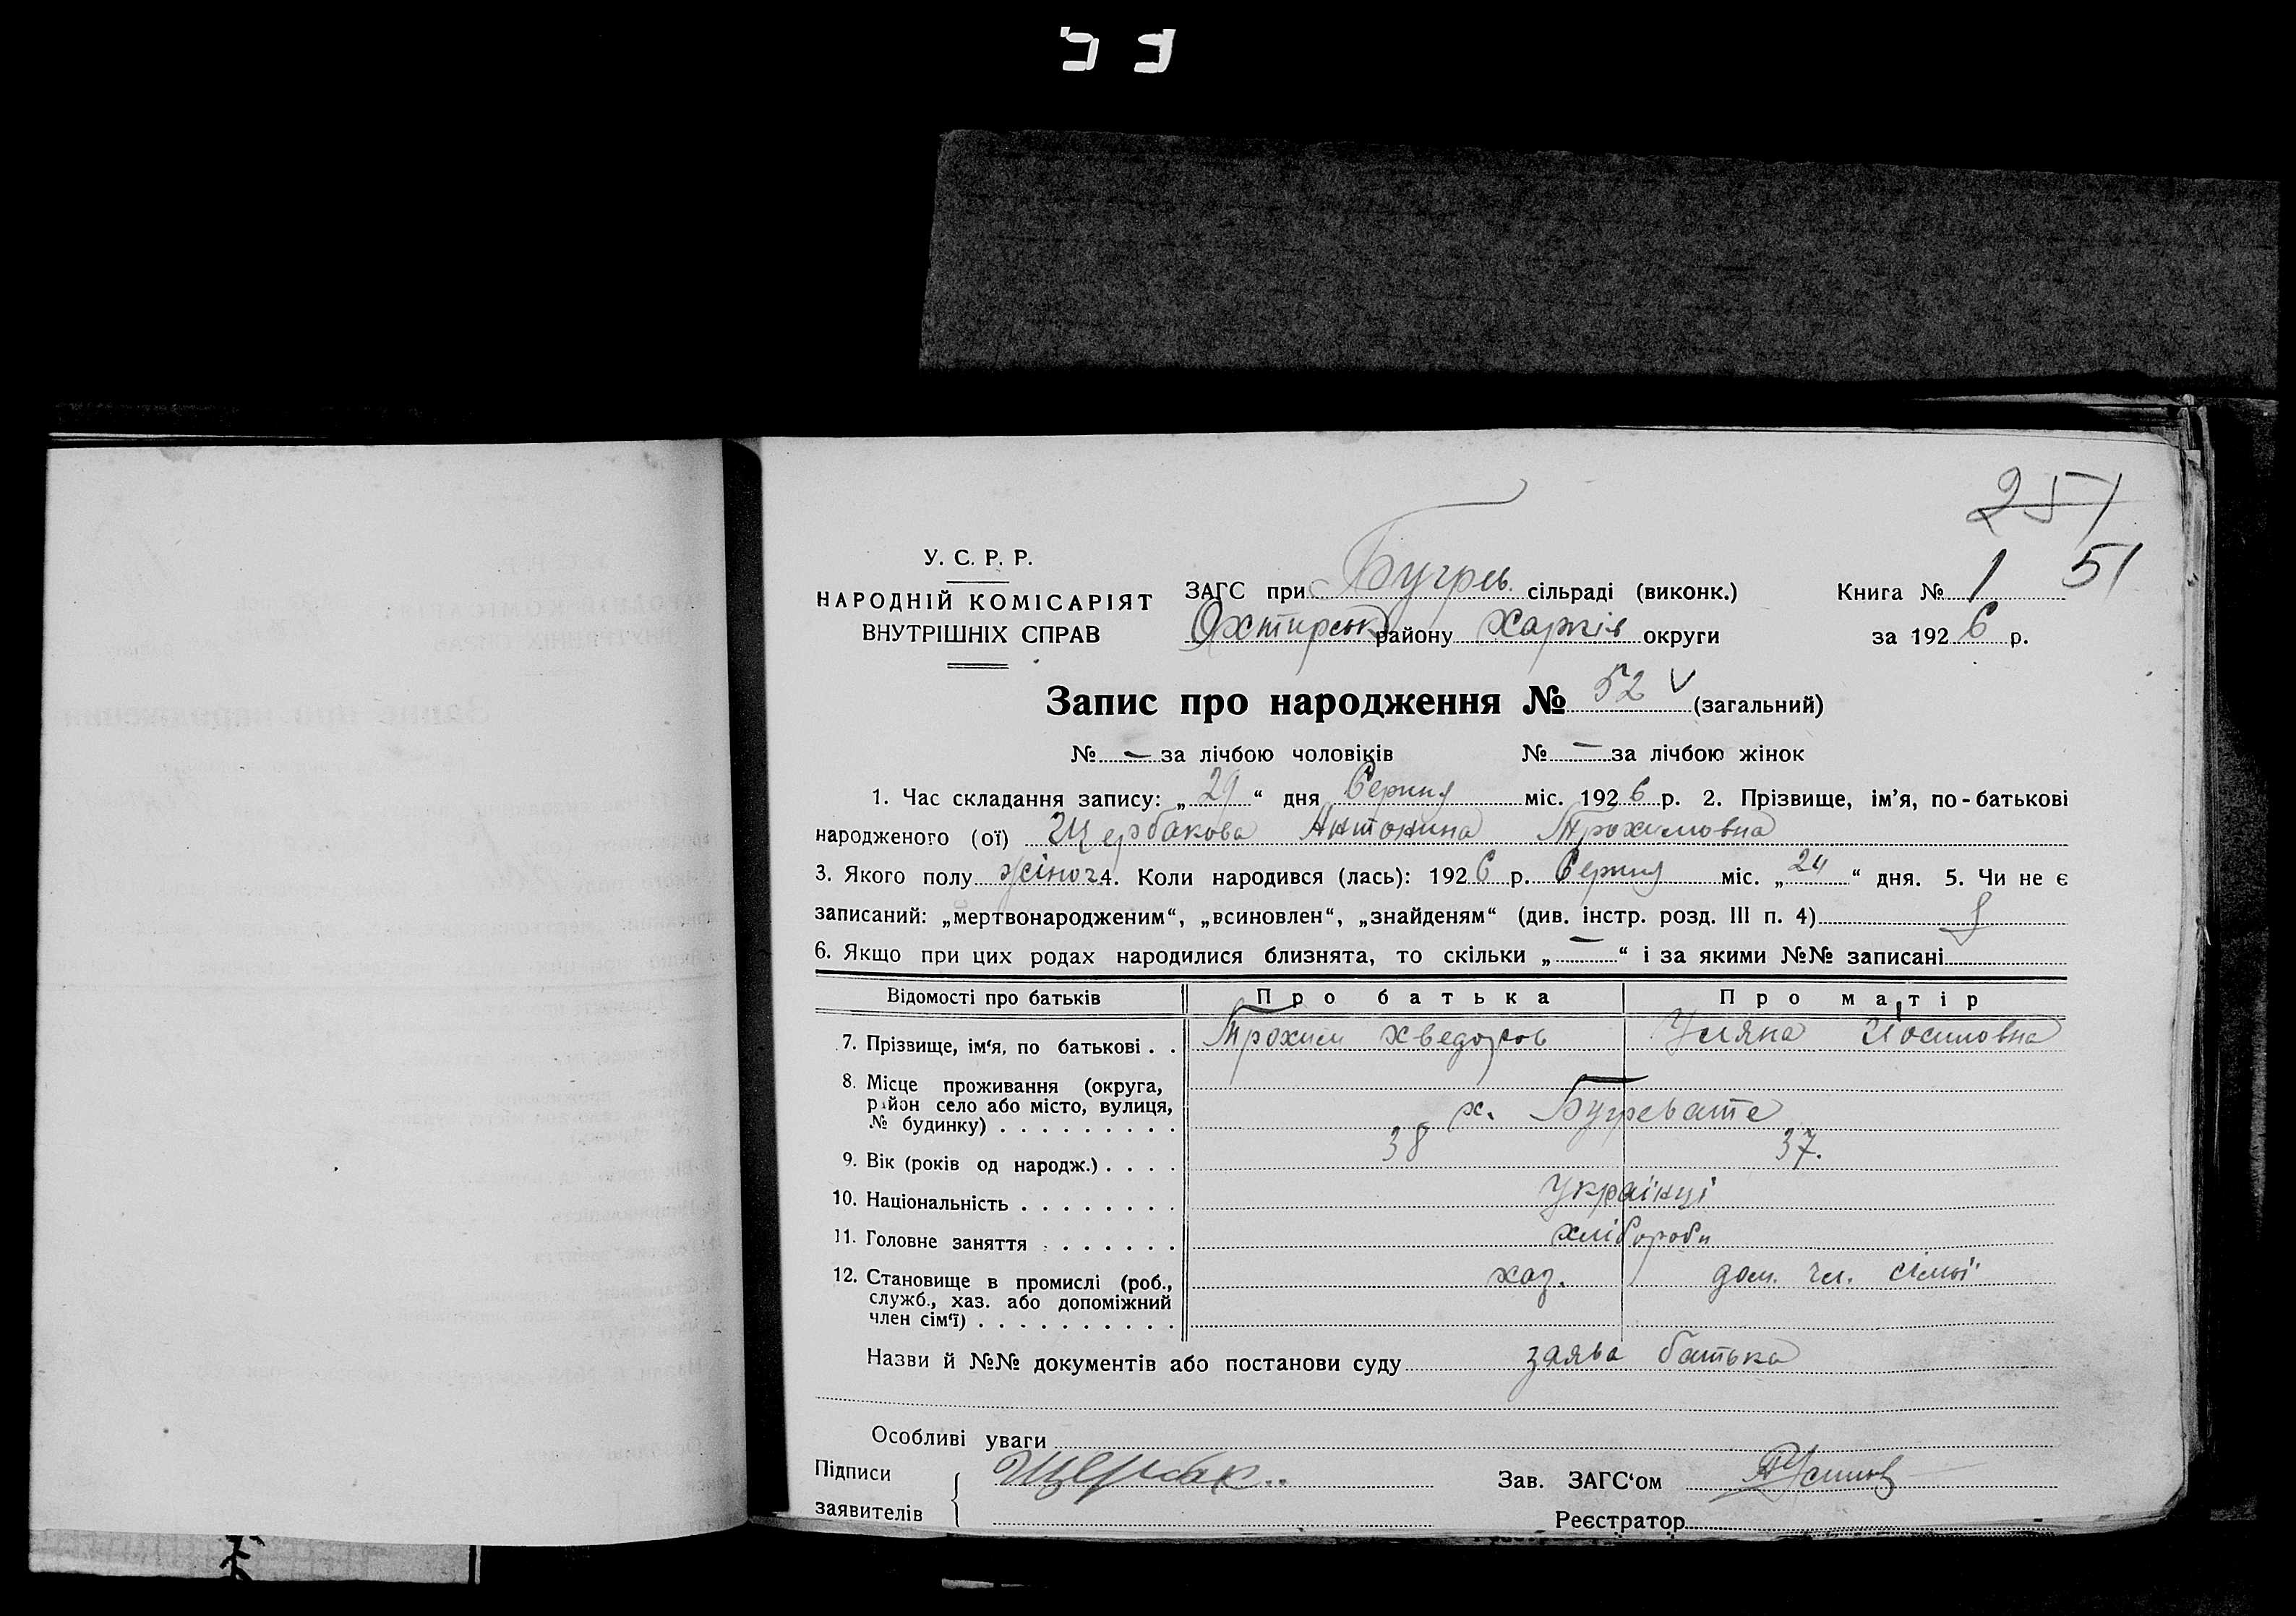 251
У. С. Р. Р.
НАРОДНІЙ КОМІСАРІЯТ
ВНУТРІШНІХ СПРАВ
ЗАГС при Бугрев. сільраді (виконк.)
Охтирськ району Харків округи
Книга № 1 51
за 1926 р.
Запис про народження № 52 V (загальний)
№ — за лічбою чоловіків № — за лічбою жінок
1. Час складання запису: „ 29 “ дня Серпня міс. 1926 р. 2. Прізвище, ім’я, по-батькові
народженого (ої) Щербакова Антонина Трохимовна
3. Якого полу жіноч 4. Коли народився (лась): 1926 р. Серпня міс. „ 24 “ дня. 5. Чи не є
записаний: „мертвонародженим“, „всиновлен“, „знайденям“ (див. інстр. розд. III п. 4)
6. Якщо при цих родах народилися близнята, то скільки „ — “ і за якими №№ записані
Відомості про батьків Про батька Про матір
7. Прізвище, ім‘я, по батькові . . Трохим Хведоров Уляна Йосиповна
8. Місце проживання (округа,
район село або місто, вулиця,
№ будинку) . . . . . . . . . х. Бугревате
9. Вік (років од народж.) . . . . 38 37.
10. Національність . . . . . . . . Українці
11. Головне заняття . . . . . . . хлібороби
12. Становище в промислі (роб.,
служб., хаз. або допоміжний
член сім‘ї) . . . . . . . . . . хаз. дом. чл. сімьї
Назви й №№ документів або постанови суду заява батька
Особливі уваги
Підписи
заявителів Щербак..
Зав. ЗАГС‘ом
Реєстратор